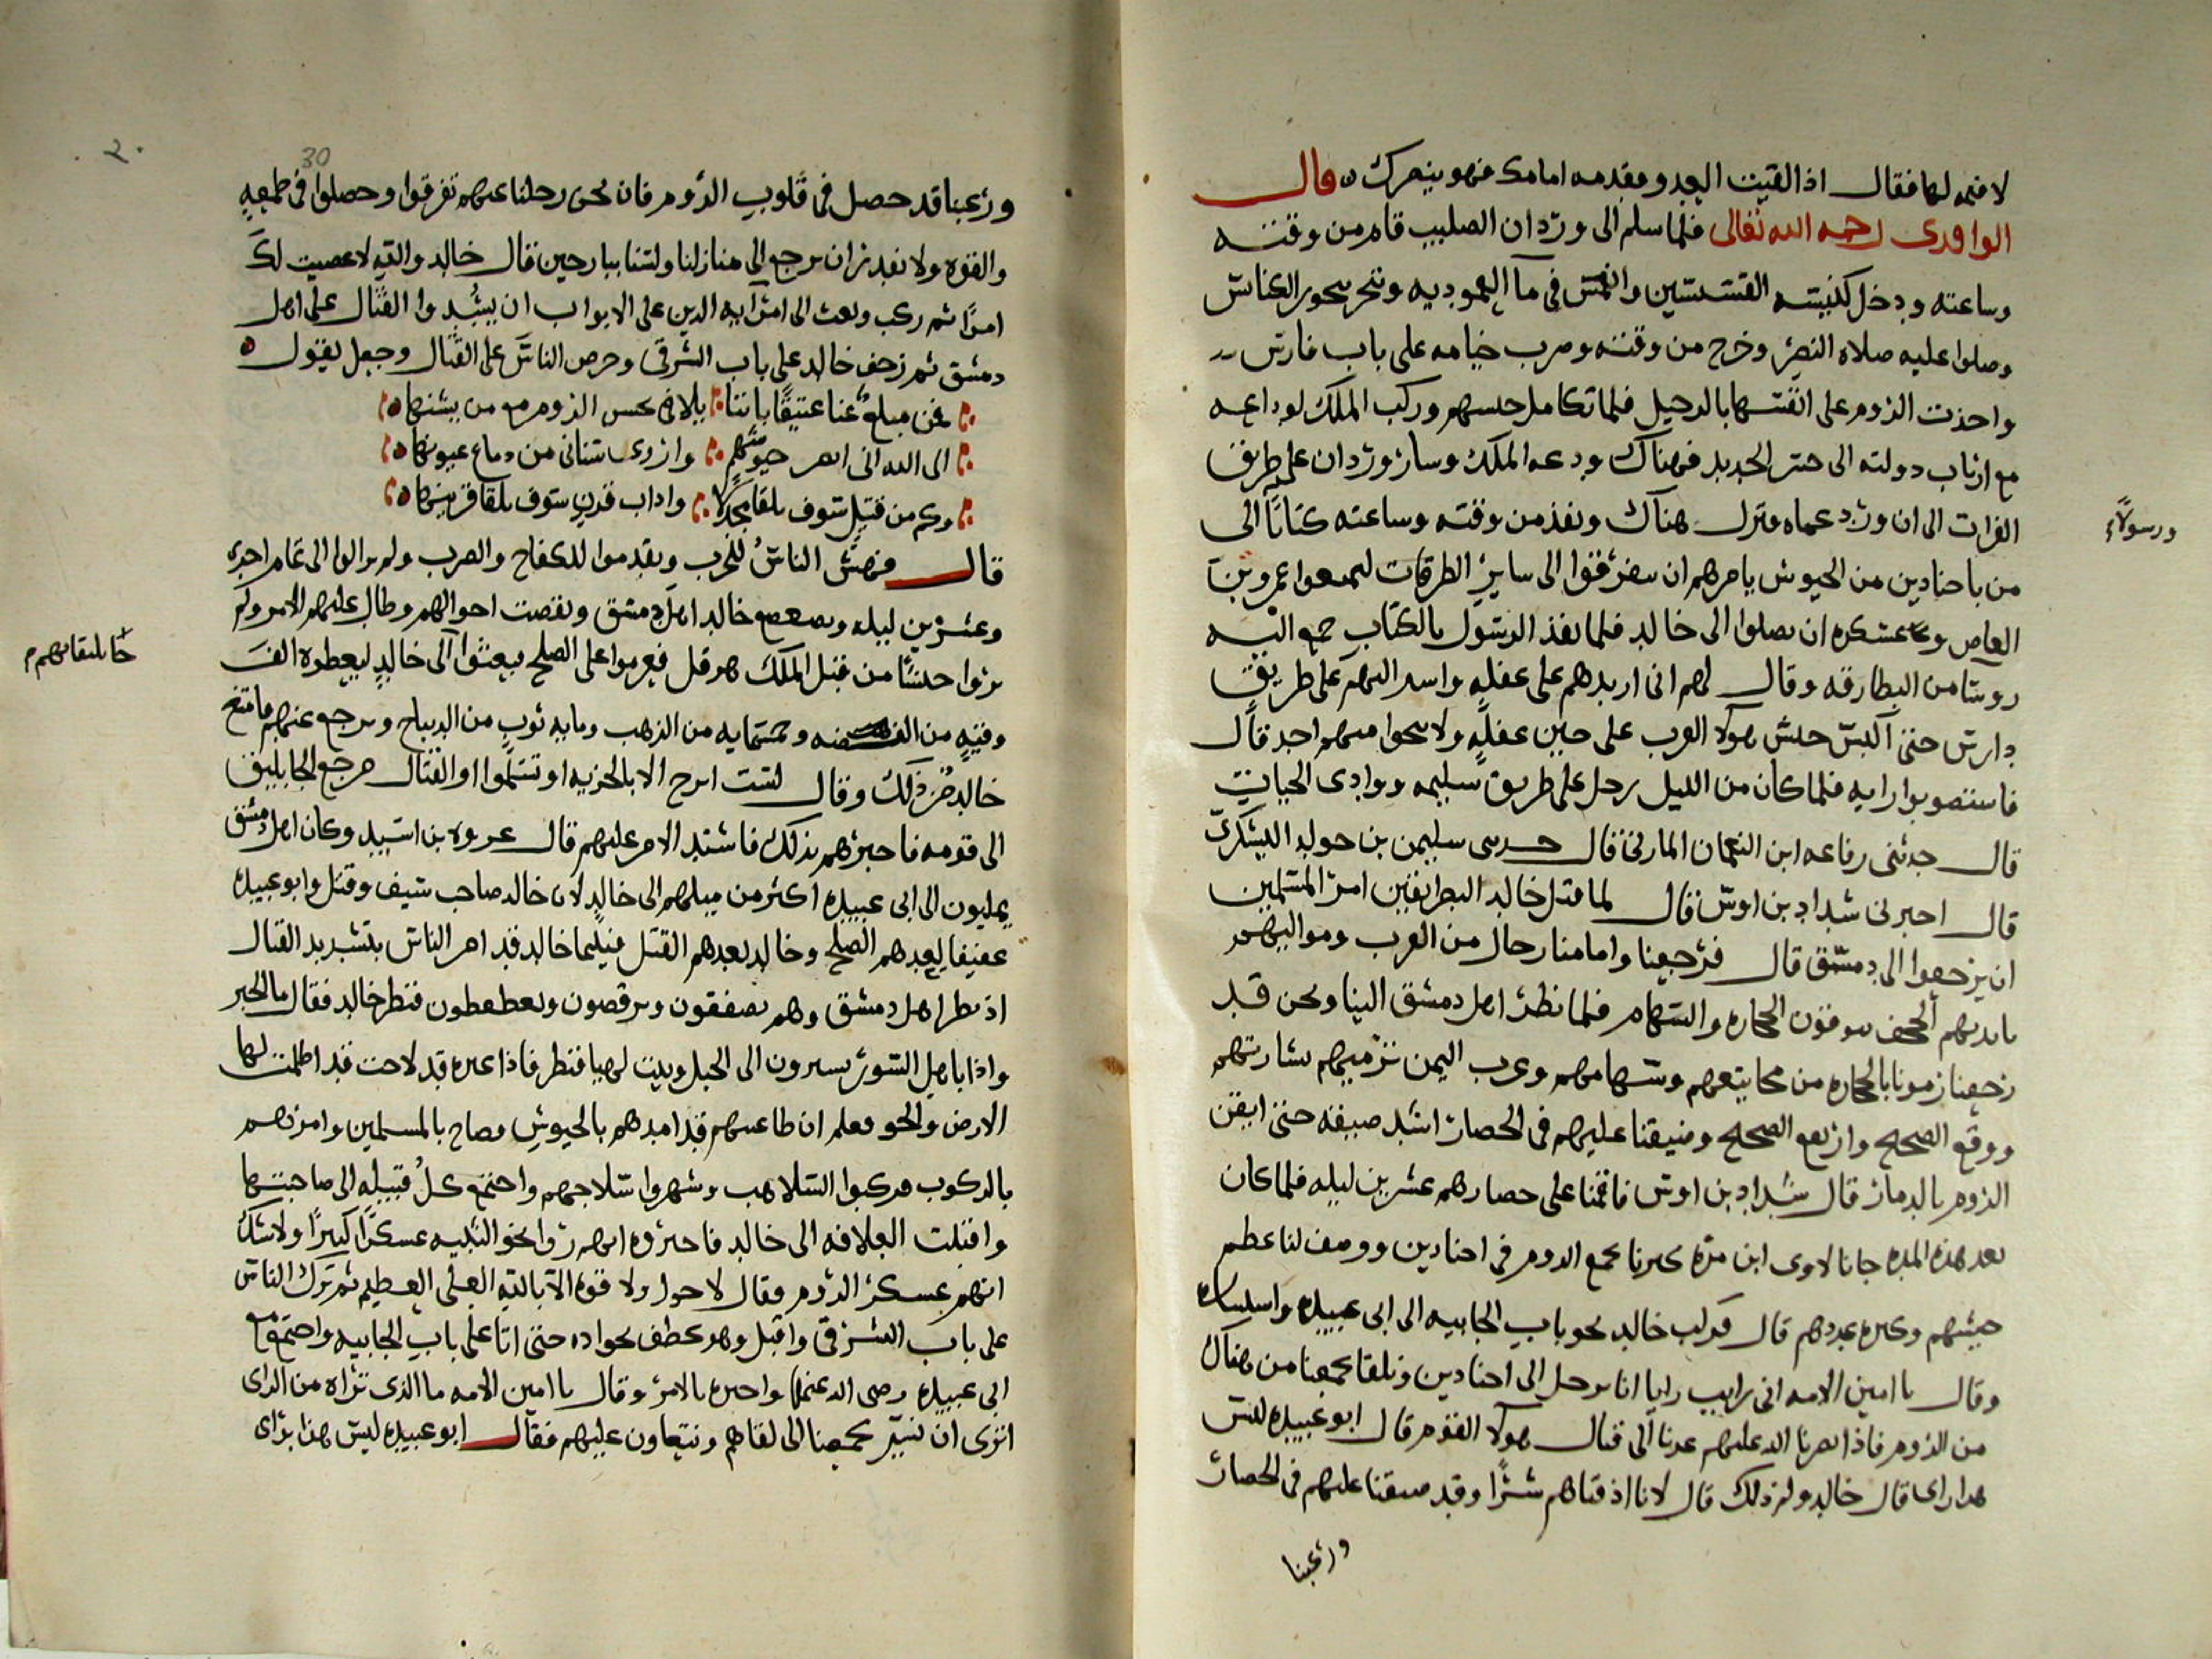 لا قيمه لها فقال اذا لقيت العدو فقدمه امامك فهو ينصرك قال
الواقدى رحمه الله تعالى فلما سلم الى وردان الصليب قام من وقته
وساعته ودخل كنيسته القسيسين وانغمس فى ماء المعموديه وتبخر ببخور الكنائس
وصلوا عليه صلاة النصر وخرج من وقته وضرب خيامه على باب فارس
واخذت الروم على انفسها بالرحيل فلما تكامل جيشهم وركب الملك لوداعه
مع ارباب دولته الى جسر الحديد فهناك ودعه الملك وسار وردان على طريق
الفرات الى ان ورد حماه ونزل هناك ونفذ من وقته وساعته كتابا الى
ورسولاً
من باجنادين من الجيوش يامرهم ان يتفرقوا الى ساير الطرقات ليمنعوا عمرو بن
العاص وعسكره ان يصلوا الى خالد فلما نفذ الرسول بالكتاب جمع اليه
من البطارقه وقال لهم انى اريد على غفله واسير اليهم على طريق
دارس حتى اكبس جيش هولا العرب على حين غفله ولا ينجوا منهم احد قال
فاستصوبوا رايه فلما كان من الليل رحل على طريق سليمه ووادى الحيات
قال حدثنى رفاعه ابن النعمان المازنى قال حدثنى سليمن بن خولد اليشكرى
قال اخبرنى شداد بن اوس قال لما قتل خالد البطريقين امر المسلمين
ان يزحفوا الى دمشق قال فزحفنا وامامنا رجال من العرب ومواليهم
بايديهم الحجف يتوقون الحجاره والسهام فلما نظر اهل دمشق الينا ونحن قد
زحفنا رمونا بالحجاره من مجانيقهم وسهامهم وعرب اليمن ترميهم
ووقع الصحيح وارتفع الصحيح وضيقنا عليهم فى الحصار اشد ضيقه حتى ايقن
الروم بالدمار قال شداد بن اوس فاقمنا على حصارهم عشرين ليله فلما كان
بعد هذه المده جانا لاوى ابن مره يخبرنا بجمع الروم فى اجنادين ووصف لنا عظم
جيشهم وكثره عددهم قال فركب خالد نحو باب الجابيه الى ابى عبيده واستشاره
وقال يا امين الامه انى رايت رايا انا نرحل الى اجنادين ونلقا جمعنا من هناك
من الروم فاذا نصرنا الله عليهم عدنا الى قتال هولا القوم قال ابو عبيده ليس
هذا راى قال خالد ولم ذلك قال لانا اذقناهم شرا وقد ضيقنا عليهم فى الحصار
ورعبنا
٢٠
30
ورعبنا قد حصل فى قلوب الروم فان نحن رحلنا عنهم تفرقوا وحصلوا فى طمعه
والقوه ولا نقدر ان نرجع الى منازلنا ولسنا ببارحين فقال خالد والله لا عصيت لك
امرا ثم ركب وبعث الى امرايه الذين على الابواب ان يشدوا القتال على اهل
دمشق ثم زحف خالد على باب الشرقى وحرض الناس على القتال وجعل يقول
فمن مبلغ عنا عتيقا باننا نلاقى بحبس الروم مع من
الى الله انى اهم جيوشهم واروى سنانى من دماء عيونها
وكم من قتيل سوف يلقا مجدلا وادآب قرين سوف يلقا قرينها
قال فنهض الناس للحرب وتقدموا للكفاح والضرب ولم يزالوا الى تمام احدى
وعشرين ليله وضعضع خالد اهل دمشق ونقصت احوالهم وطال عليهم الامر ولم
يروا جيشا من قبل الملك هرقل فعزموا على الصلح فبعثوا الى خالد ليعطوه الف
وقيه من الفضه وخمسمايه من الذهب ومايه ثوب من الديباج ويرجع عنهم فامتنع
خالد من ذلك وقال لست ابرح الا بالجزيه او تسلموا او القتال فرجع الجاثليق
الى قومه فاخبرهم بذلك فاشتد الامر عليهم قال عروه بن اسيد وكان اهل دمشق
يميلون الى ابى عبيده اكثر من ميلهم الى خالد لان خالد صاحب سيف وقتل وابو عبيده
عفيفا يعدهم الصلح وخالد يعدهم القتل فبينما خالد قد امر الناس بتشديد القتال
اذ نظر اهل دمشق وهم يصفقون ويرقصون ويعطعطون فنظر خالد فقال ما الخبر
واذا باهل السور يشيرون الى الجبل وبيت لهيا فنظر فاذا غبره قد لاحت قد اظلمت لها
الارض والجو فعلم ان طاغيتهم قد امدهم بالجيوش فصاح بالمسلمين وامرهم
بالركوب فركبوا السلاهب وشهروا سلاحهم واجتمع كل قبيله الى صاحبتها
واقبلت العلافه الى خالد فاخبروه انهم راوا نحو الثنيه عسكرا كبيرا ولا شك
انهم عسكر الروم فقال لا حول ولا قوه الا بالله العلى العظيم ثم ترك الناس
على باب الشرقى واقبل وهو يعطف بجواده حتى اتا على باب الجابيه واجتمع مع
ابى عبيده رضى الله عنهما واخبره بالامر وقال يا امين الامه ما الذى تراه من الراى
اترى ان نسير بجمعنا الى لقاهم ونتعاون عليهم فقال ابو عبيده ليس هذا براى